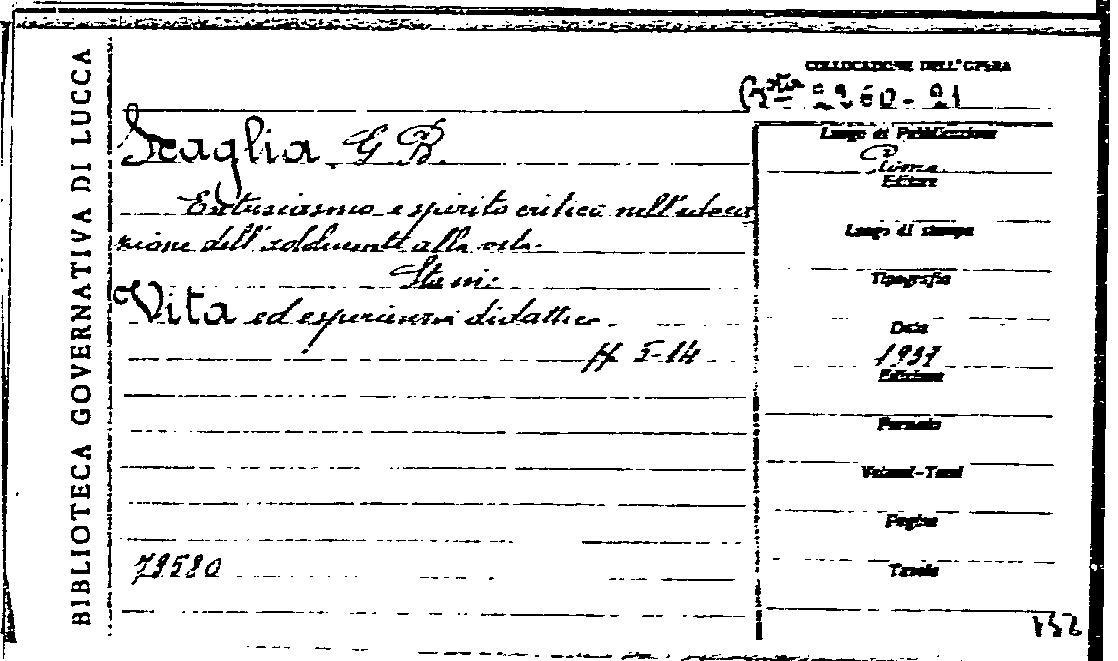 BIBLIOTECA GOVERNATIVA DI LUCCA
COLLOCAZIONE DELL'OPERA
Bsta 2260-21
Scaglia G B.
Entusiasmo e spirito critico nell'educa
zione dell'
alla
Vita ed esperienza didattica
pp 5-14
79580
Luogo di Pubblicazione
Roma
Editore
Luogo di stampa
Tipografia
Data
1937
Edizione
Formato
Volumi-Tomi
Pagine
Tavole